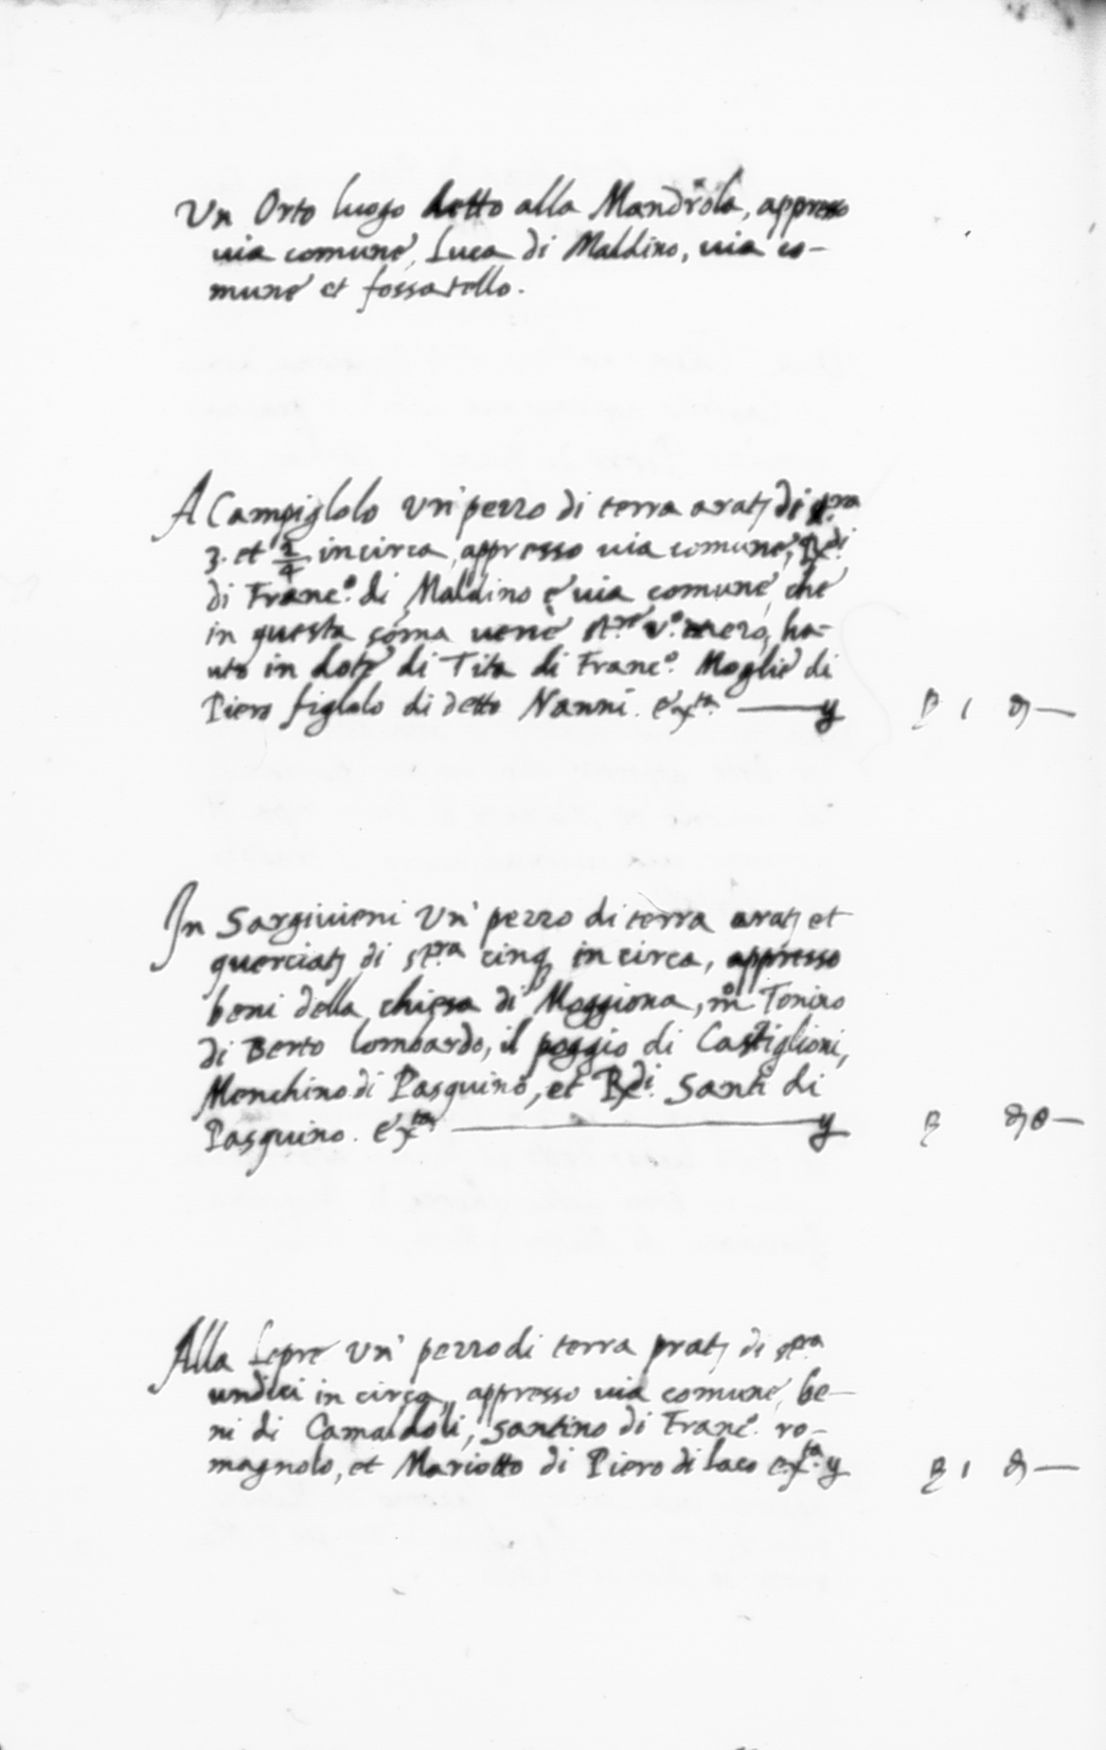 Un Orto luogo detto alla Mandrola, appresso
via comune, Luca di Maldino, via co-
mune et fossatello.
A Campiglolo un' pezzo di terra aratj di st.ra
3. et 3/4 incirca, appresso via comune, Rx.di
di Franc.o di Maldino e via comune, che
in questa soma
uto in dote di Tita di Franc.o Moglie di
Piero figlolo di detto Nanni. ex.ta ——— y
In Sargivieni un' pezzo di terra aratj et
querciatj di st.ra cinq in circa, appresso
beni della chiesa di Moggiona, m.o Tonino
di Berto lombardo, il poggio di Castiglioni,
Menchino di Pasquino, et Rx.di Santi di
Pasquino. ex.ta ——— y
Alla Lepre un' pezzo di terra pratj di st.ra
undici in circa, appresso via comune, be-
ni di Camaldoli, Santino di Franc.o ro-
magnolo, et Mariotto di Piero di Laco ex.ta y